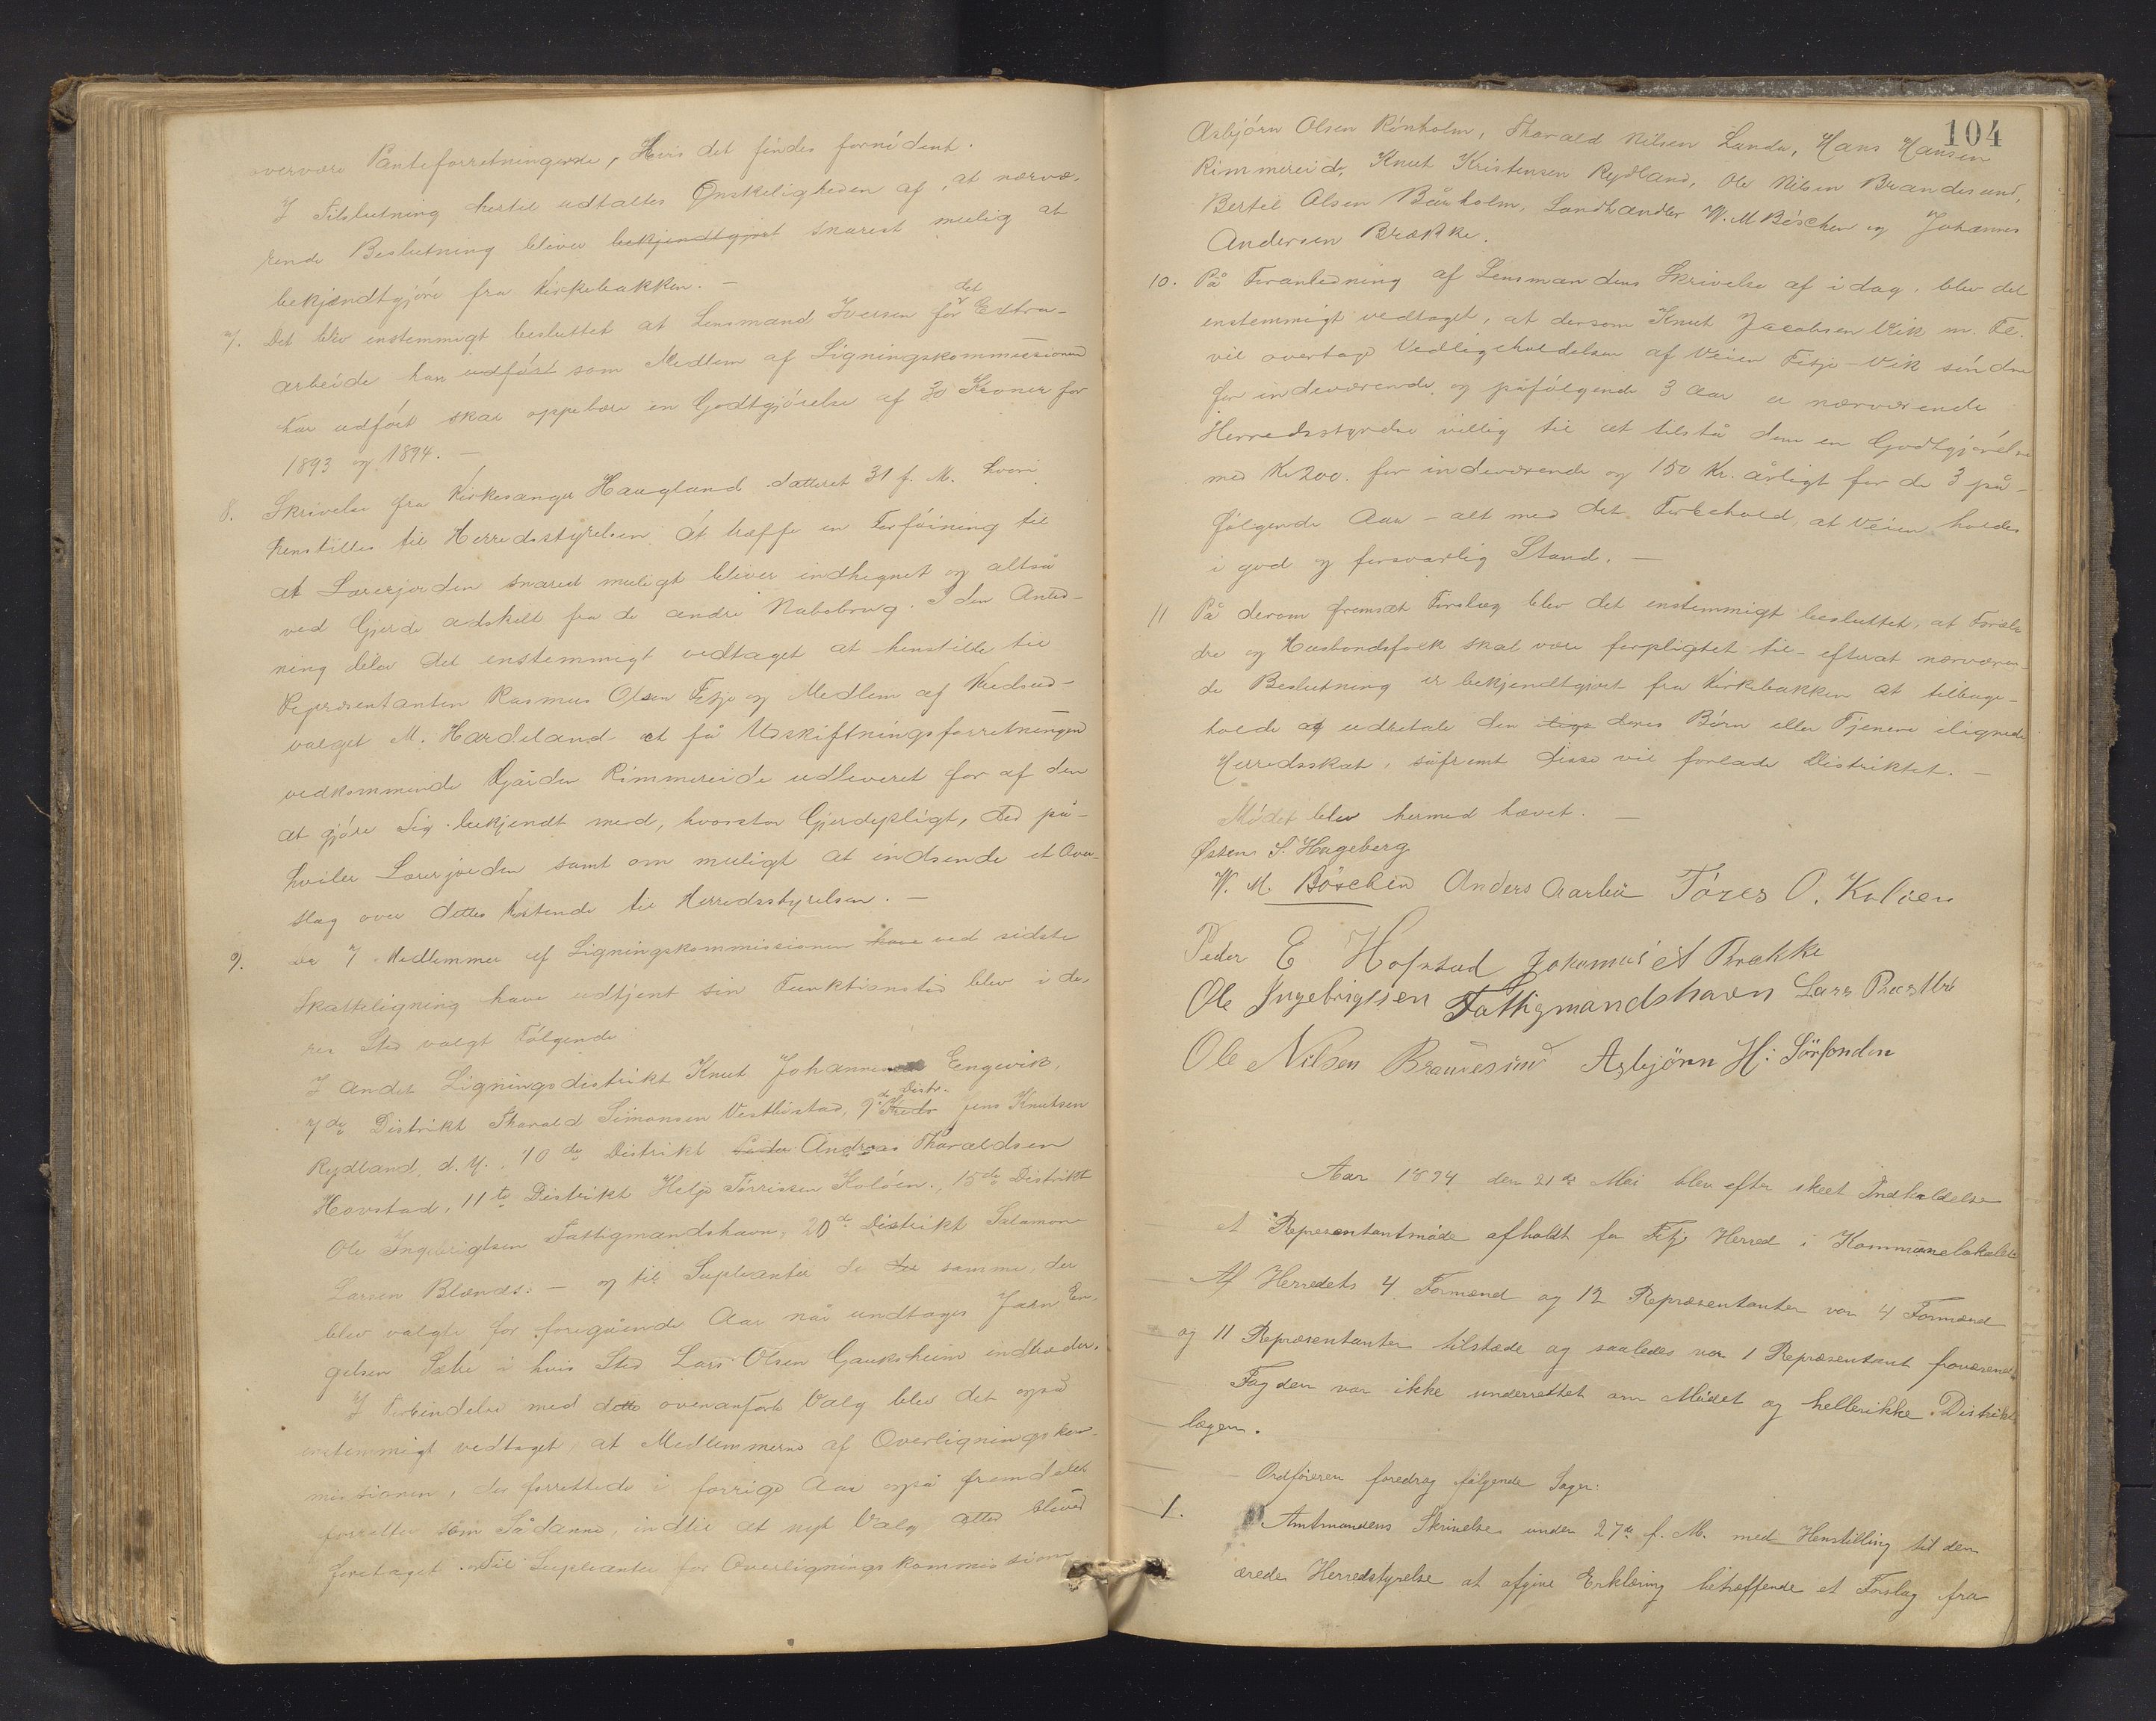 overvære Panteforretningerne, Hvis det findes fornødent.
I Tilslutning hertil udtaltes Ønskeligheden af, at nærvæ-
rende Beslutning bliver bekjendtgjort snarest mulig at
bekjendtgjøre fra Kirkebakken. —
7. Det blev enstemmigt besluttet at Lensmand Iversen for det Extra-
arbeide han udført som Medlem af Ligningskommissionen
har udført skal oppebære en Godtgjørelse af 30 Kroner for
1893 og 1894. —
8. Skrivelse fra Kirkesanger Haugland datteret 31 f. M. hvori
henstilles til Herredsstyrelsen at træffe en Forføining til
at Lærerjorden snarest muligt bliver indhegnet og altså
ved Gjerde adskilt fra de andre Nabobrug. I den Anled-
ning blev det enstemmigt vedtaget at henstille til
Repræsentanten Rasmus Olsen Fitje og Medlem af
valget M. Hardeland at få Udskiftningsforretningen
vedkommende Gården Rimmereide udleveret for af den
at gjøre sig bekjendt med, hvorstor Gjerdepligt, der på-
hviler Lærerjorden samt om muligt at indsende et Over-
slag over dettes Kostende til Herredsstyrelsen. —
9. Da 7 Medlemmer af Ligningskommissionen have ved sidste
Skatteligning have udtjent sin Funktionstid blev i de-
res Sted valgt Følgende
I andet Ligningsdistrikt Knut Johannesen Engevik,
7de Distrikt Thorvald Simonsen Vestbøstad, 9de Distr. Jens Knutsen
Rydland, d. y., 10de Distrikt Andreas Tharaldsen
Hovstad, 11te Distrikt Helje Tørrisen Koløen, 15de Distrikt
Ole Ingebrigtsen Fattigmandshavn, 20de Distrikt Salamon
Larsen Blænds: — og til Supleanter de samme, der
blev valgte for foregående Aar når undtages Jahn En-
gelsen Sætre i hvis Sted Lars Olsen Gauksheim indtræder.
I Forbindelse med dette ovenanførte Valg blev det også
enstemmigt vedtaget, at Medlemmerne af Overligningskom-
missionen, der forrettede i forrige Aar også fremdeles
forretter som Sådanne, indtil et nyt Valg atter bliver
foretaget. Til Supleanter for Overligningskommission
104
Asbjørn Olsen Rønholm, Thorvald Nilsen Lunde, Hans Hansen
Rimmereid, Knut Kristensen Rydland, Ole Nilsen Brandesund,
Bertel Olsen Bårholm, Landhandler W. M Böschen og Johannes
Andersen Brække.
10. På Foranledning af Lensmandens Skrivelse af i dag, blev det
enstemmigt vedtaget, at dersom Knut Jacobsen Vik m. Fl.
vil overtage Vedligeholdelsen af Veien Fitje-Vik søndre
for indeværende og påfølgende 3 Aar er nærværende
Herredsstyrelse villig til at tilstå dem en Godtgjørelse
med Kr 200. for indeværende og 150 Kr. årligt for de 3 på-
følgende Aar – alt med det Forbehold at Veien holdes
i god og forsvarlig Stand. —
11 På derom fremsat Forslag blev det enstemmigt besluttet, at Foræl-
dre og Husbondsfolk skal være forpligtet til – efterat nærværen-
de Beslutning er bekjendtgjort fra Kirkebakken at tilbage-
holde og udbetale den deres Børn eller Tjenere ilignede
Herredsskat, såfremt disse vil forlade Distriktet. —
Mødet blev hermed hævet. —
Østen S. Hageberg
W. M. Böschen Anders Aarbø Tøres O. Koløen
Peder E Hofstad Johannes A Brække
Ole Ingebrigtsen Fattigmandshavn Lars
Ole Nilsen Brandesund Asbjørn H: Sørfonden
Aar 1894 den 21de Mai blev efter skeet Indkaldelse
et Representantmøde afholdt for Fitje Herred i Kommunelokalet
Af Herredets 4 Formænd og 12 Repræsentanter var 4 Formænd
og 11 Repræsentanter tilstede og saaledes var 1 Repræsentant fraværende.
Fogden var ikke underrettet om Mødet og hellerikke Distrikts
lægen.
Ordføreren foredrog følgende Sager:
1. Amtmandens Skrivelse under 27de f. M. med Henstilling til den
ærede Herredstyrelse at afgive Erklæring betræffende et Forslag fra